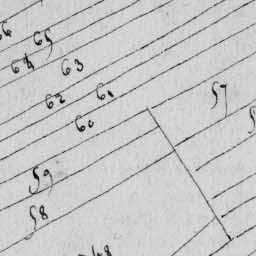 65
64
63
62
61
60
57
59
58